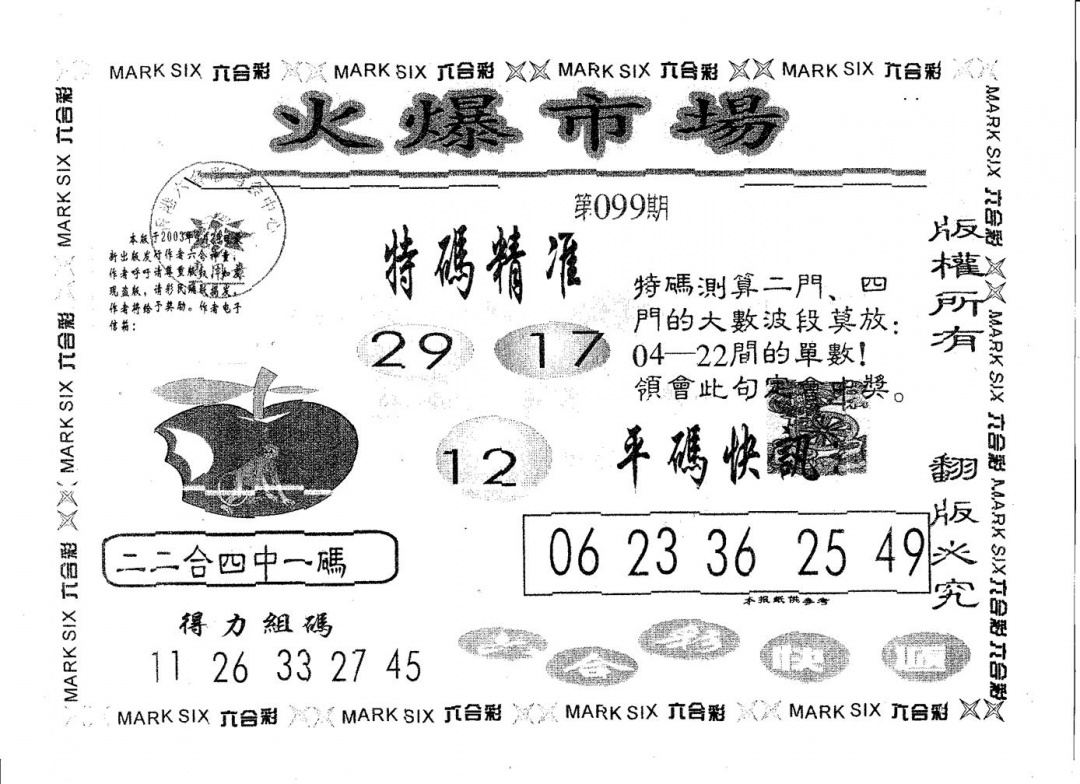 MARK SIX 六合彩 MARK SIX 六合彩 MARK SIX 六合彩 MARK SIX 六合彩
火爆市場
第099期
本版于2003年
新出版发行作者六合神童，
作者呼吁请尊重版权，如
现盗版，请彩民
作者将给予奖励。作者电子
信箱：
特碼精准
29 17
12
特碼測算二門、四
門的大數波段莫放：
04—22間的單數！
領會此句定會中獎。
平碼快訊
06 23 36 25 49
本报纸供参考
二二合四中一碼
得力組碼
11 26 33 27 45
版權所有
翻版必究
MARK SIX 六合彩 MARK SIX 六合彩 MARK SIX 六合彩
MARK SIX 六合彩 MARK SIX 六合彩 MARK SIX 六合彩 六合彩
MARK SIX 六合彩 MARK SIX 六合彩 MARK SIX 六合彩 MARK SIX 六合彩